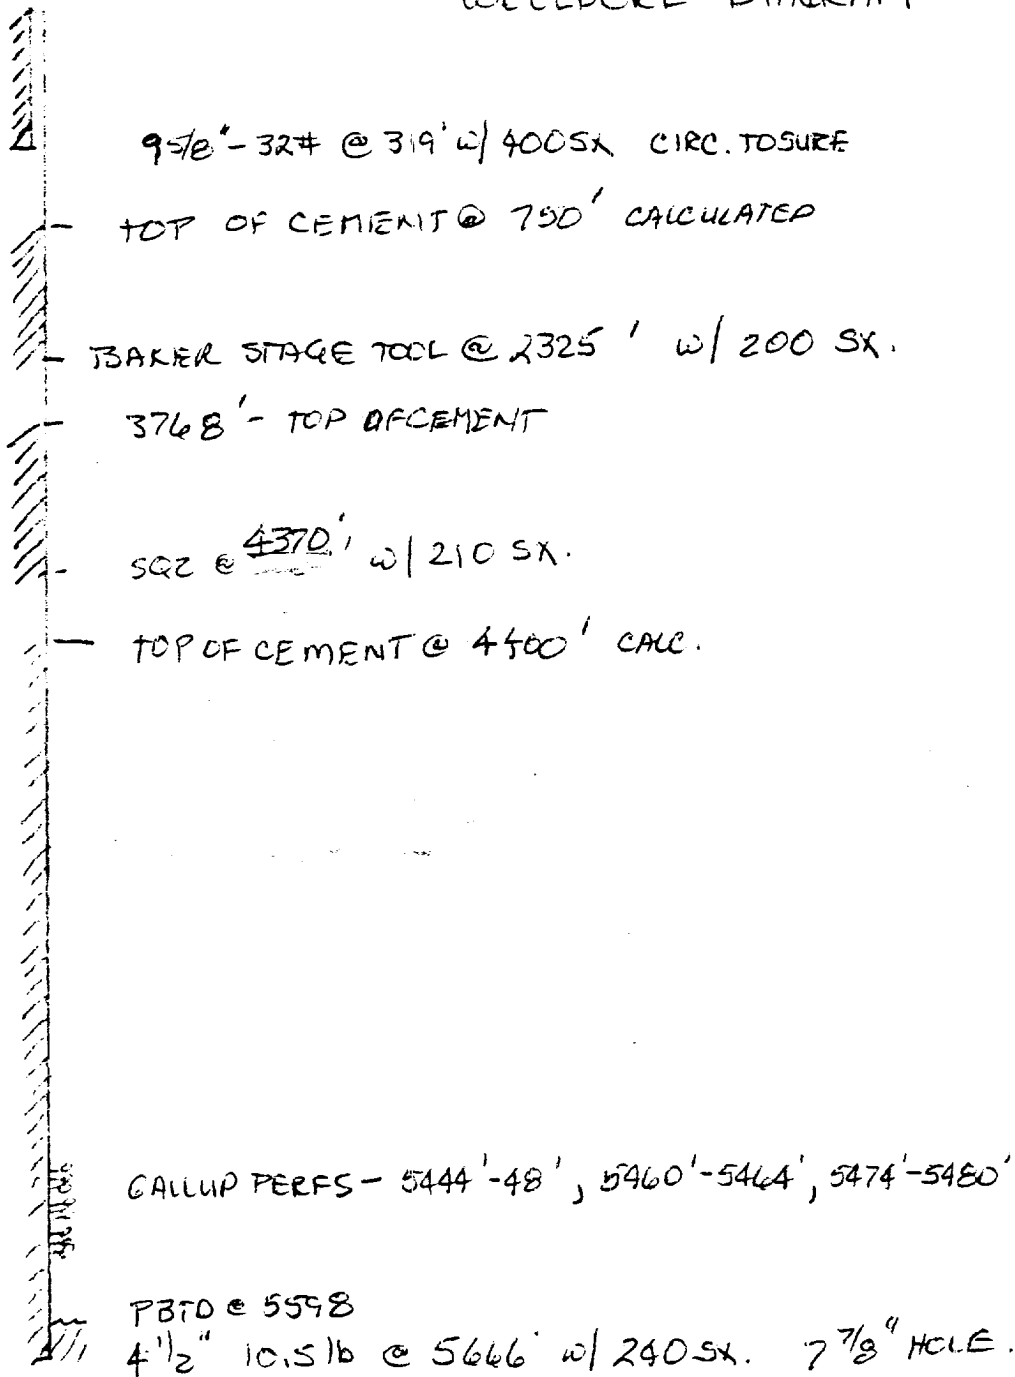 WELLBORE DIAGRAM
9 5/8" - 32# @ 319' w/ 400 SX CIRC. TO SURE
TOP OF CEMENT @ 750' CALCULATED
BAKER STAGE TOOL @ 2325' w/ 200 SX.
3768' - TOP OF CEMENT
SQZ @ 4370' w/ 210 SX.
TOP OF CEMENT @ 4400' CALC.
GALLUP PERFS - 5444'-48', 5460'-5464', 5474'-5480'
PBTD @ 5598
4 1/2" 10.5 lb @ 5666' w/ 240 SX. 7 7/8" HOLE.